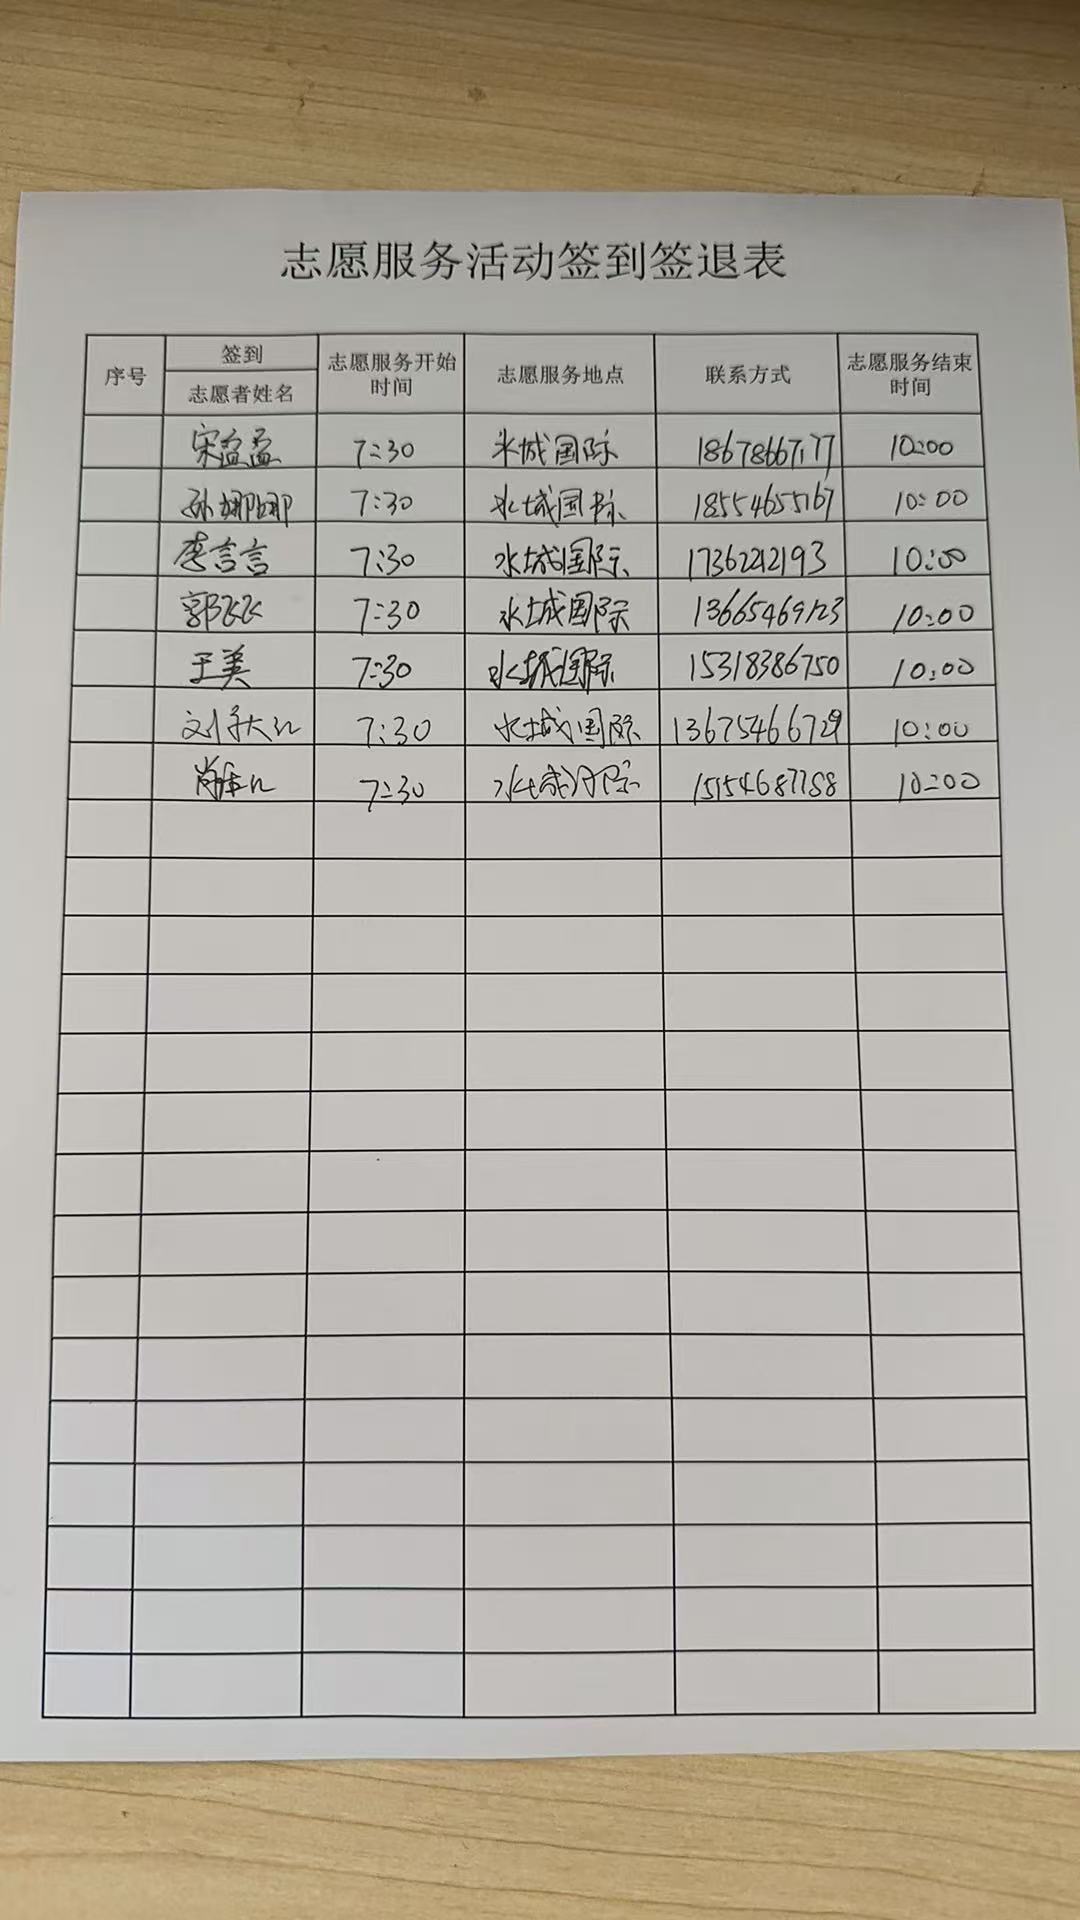 志愿服务活动签到签退表
序号 签到 志愿者姓名 志愿服务开始时间 志愿服务地点 联系方式 志愿服务结束时间
宋孟孟 7:30 水城国际 18678667177 10:00
孙娜娜 7:30 水城国际 18554655167 10:00
李言言 7:30 水城国际 10:00
郭飞飞 7:30 水城国际 13665469123 10:00
王美 7:30 水城国际 15318386750 10:00
刘 7:30 水城国际 13675466729 10:00
7:30 水城国际 10:00